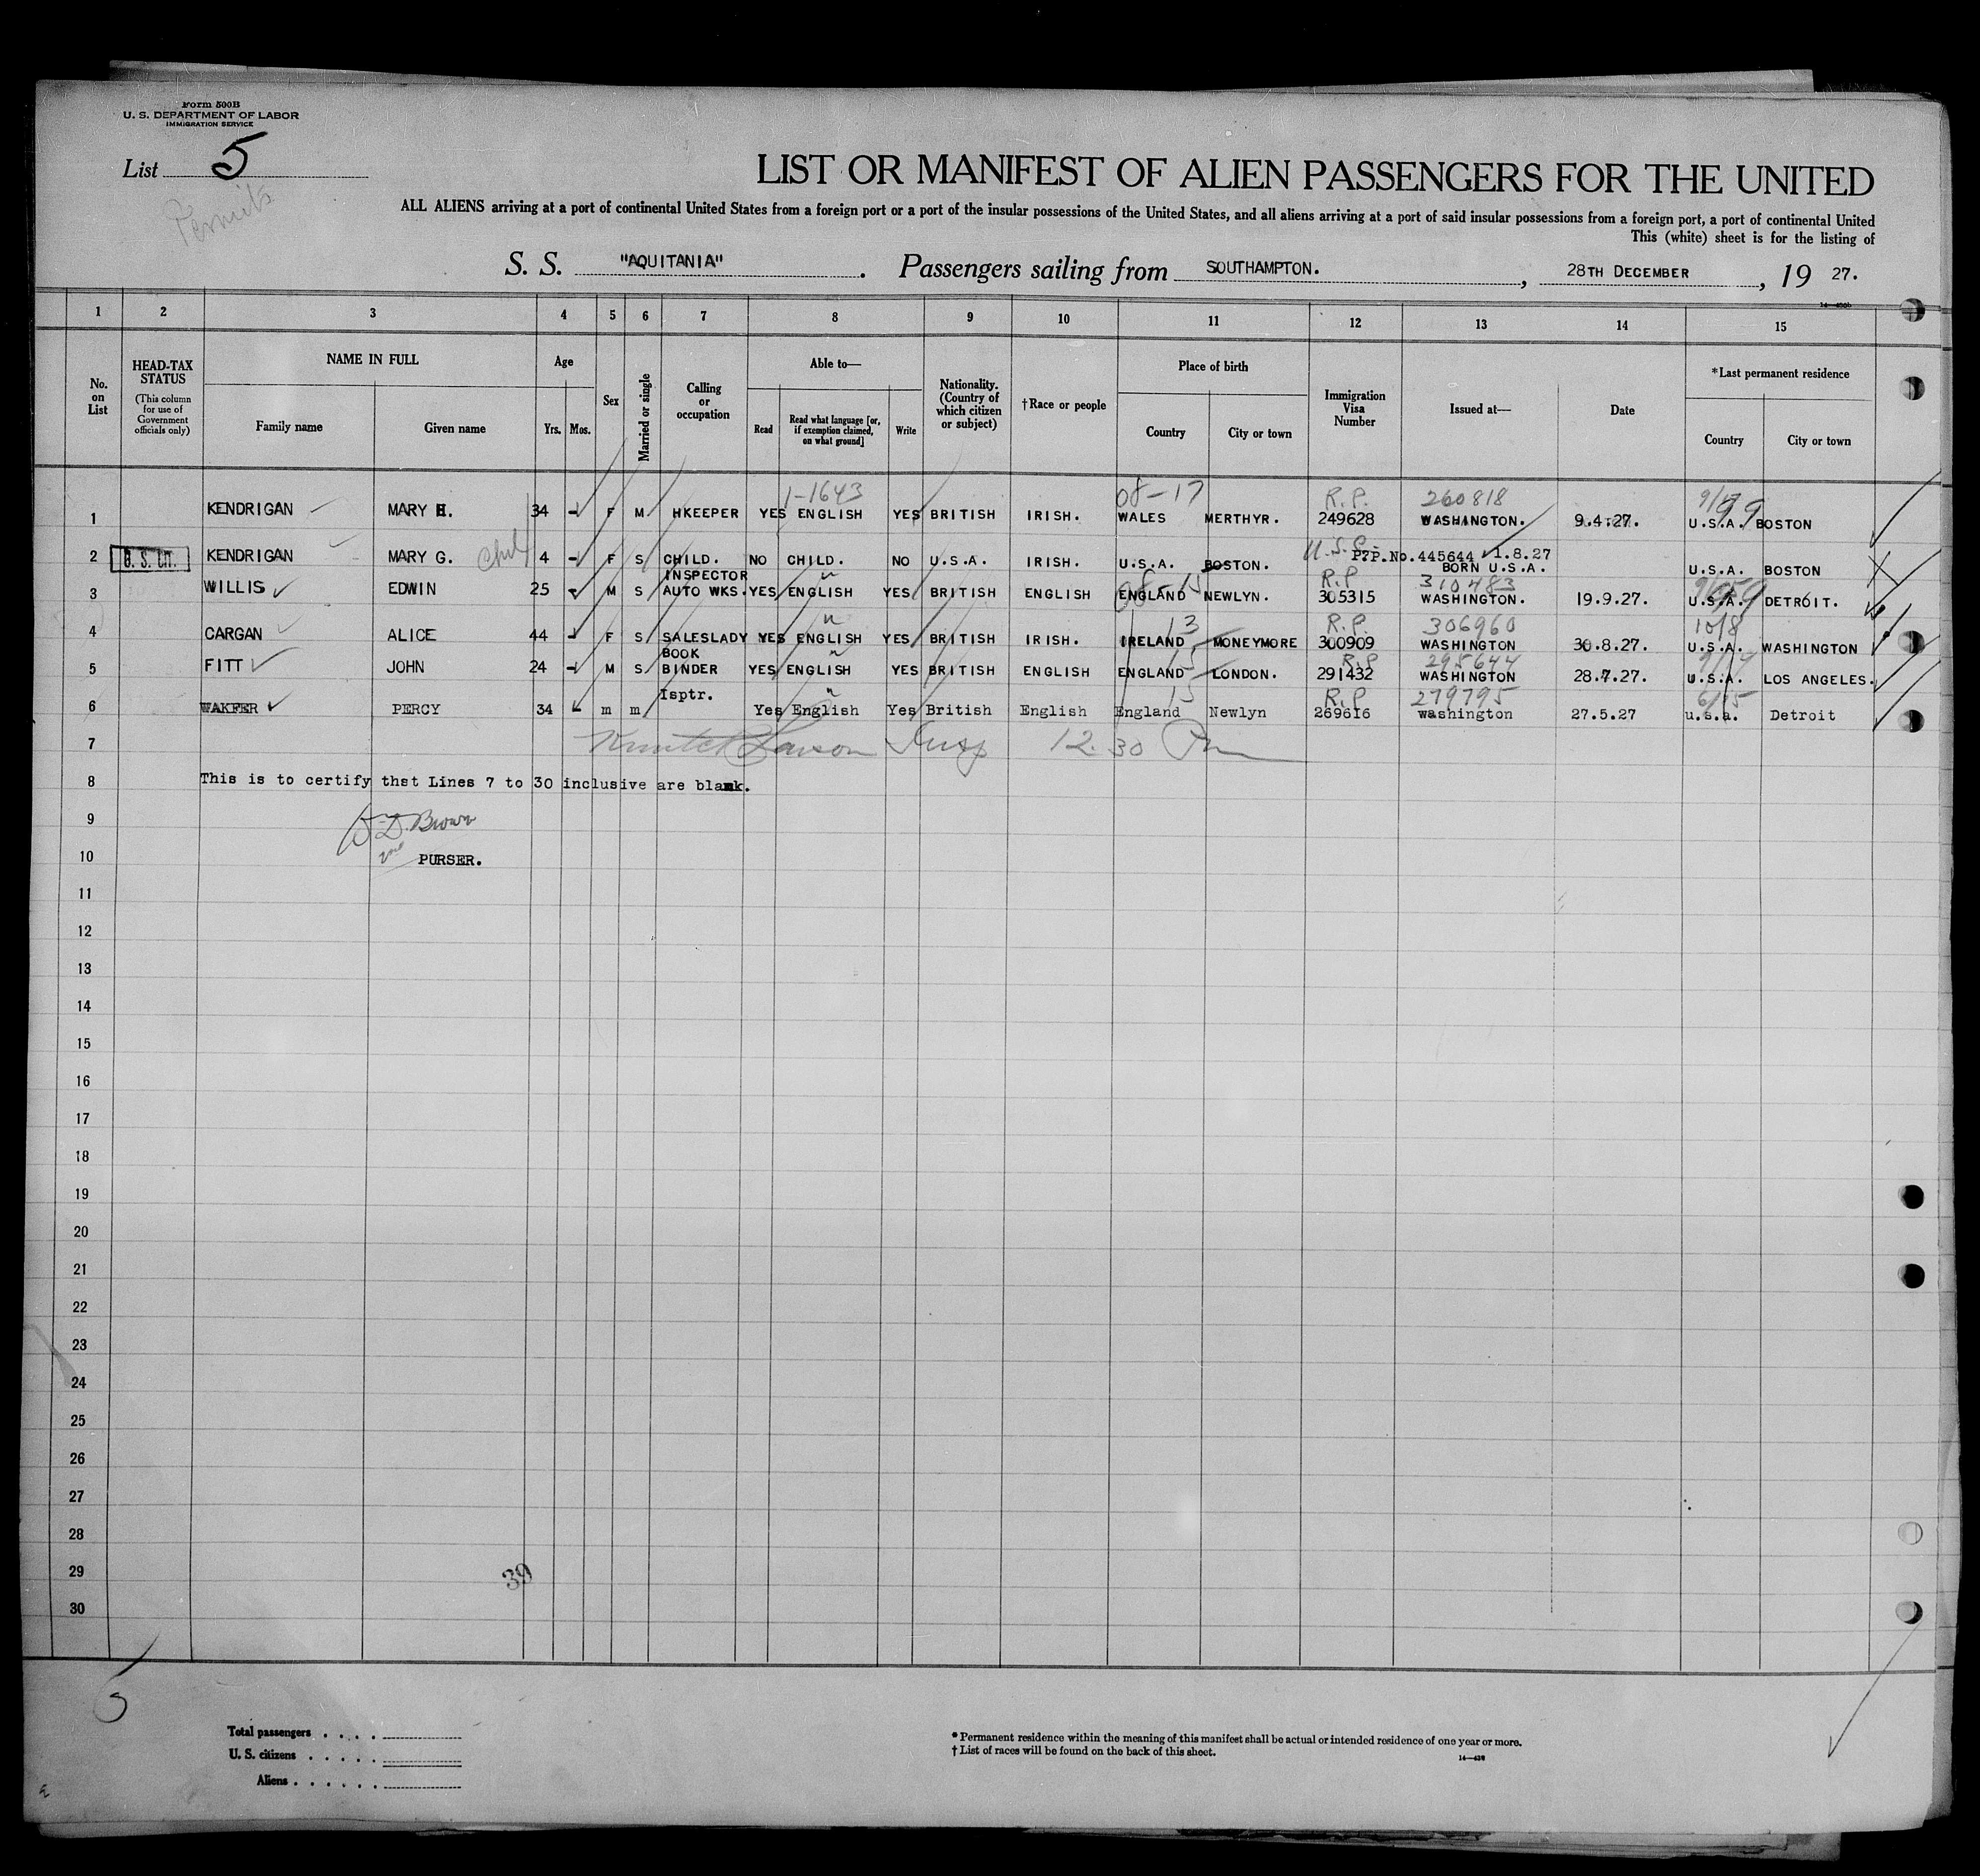 Form 500B
U. S. DEPARTMENT OF LABOR
IMMIGRATION SERVICE
List 5
Permits
LIST OR MANIFEST OF ALIEN PASSENGERS FOR THE UNITED
ALL ALIENS arriving at a port of continental United States from a foreign port or a port of the insular possessions of the United States, and all aliens arriving at a port of said insular possessions from a foreign port, a port of continental United
This (white) sheet is for the listing of
S. S. "AQUITANIA" . Passengers sailing from SOUTHAMPTON. , 28TH DECEMBER , 19 27.
1 2 3 4 5 6 7 8 9 10 11 12 13 14 15
No. on List
HEAD-TAX STATUS (This column for use of Government officials only)
NAME IN FULL
Family name
Given name
Age
Yrs. Mos.
Sex
Married or single
Calling or occupation
Able to—
Read
Read what language [or, if exemption claimed, on what ground]
Write
Nationality. (Country of which citizen or subject)
†Race or people
Place of birth
Country
City or town
Immigration Visa Number
Issued at—
Date
*Last permanent residence
Country
City or town
1-1643 08-17 R.P. 260818
1 KENDRIGAN MARY H. 34 - F M HKEEPER YES ENGLISH YES BRITISH IRISH. WALES MERTHYR. 249628 WASHINGTON. 9.4.27. U.S.A. BOSTON
2 KENDRIGAN MARY G. 4 - F S CHILD. NO CHILD. NO U.S.A. IRISH. U.S.A. BOSTON. P.P.No.445644 1.8.27 BORN U.S.A. U.S.A. BOSTON
R.P 310483
3 WILLIS EDWIN 25 - M S INSPECTOR AUTO WKS. YES ENGLISH YES BRITISH ENGLISH ENGLAND NEWLYN. 305315 WASHINGTON. 19.9.27. U.S.A. DETROIT.
13 R.P. 306960 10/8
4 CARGAN ALICE 44 - F S SALESLADY YES ENGLISH YES BRITISH IRISH. IRELAND MONEYMORE 300909 WASHINGTON 30.8.27. U.S.A. WASHINGTON
15 R.P 295644
5 FITT JOHN 24 - M S BOOK BINDER YES ENGLISH YES BRITISH ENGLISH ENGLAND LONDON. 291432 WASHINGTON 28.7.27. U.S.A. LOS ANGELES.
15 R.P 279795
6 WAKFER PERCY 34 - m m Isptr. Yes English Yes British English England Newlyn 269616 washington 27.5.27 u.s.a. Detroit
7 Insp 12.30 Pm
8 This is to certify thst Lines 7 to 30 inclusive are blank.
9 D. Brown
10 2nd PURSER.
11
12
13
14
15
16
17
18
19
20
21
22
23
24
25
26
27
28
29
39
30
Total passengers . . . .
U. S. citizens . . . . .
Aliens . . . . . .
* Permanent residence within the meaning of this manifest shall be actual or intended residence of one year or more.
† List of races will be found on the back of this sheet.